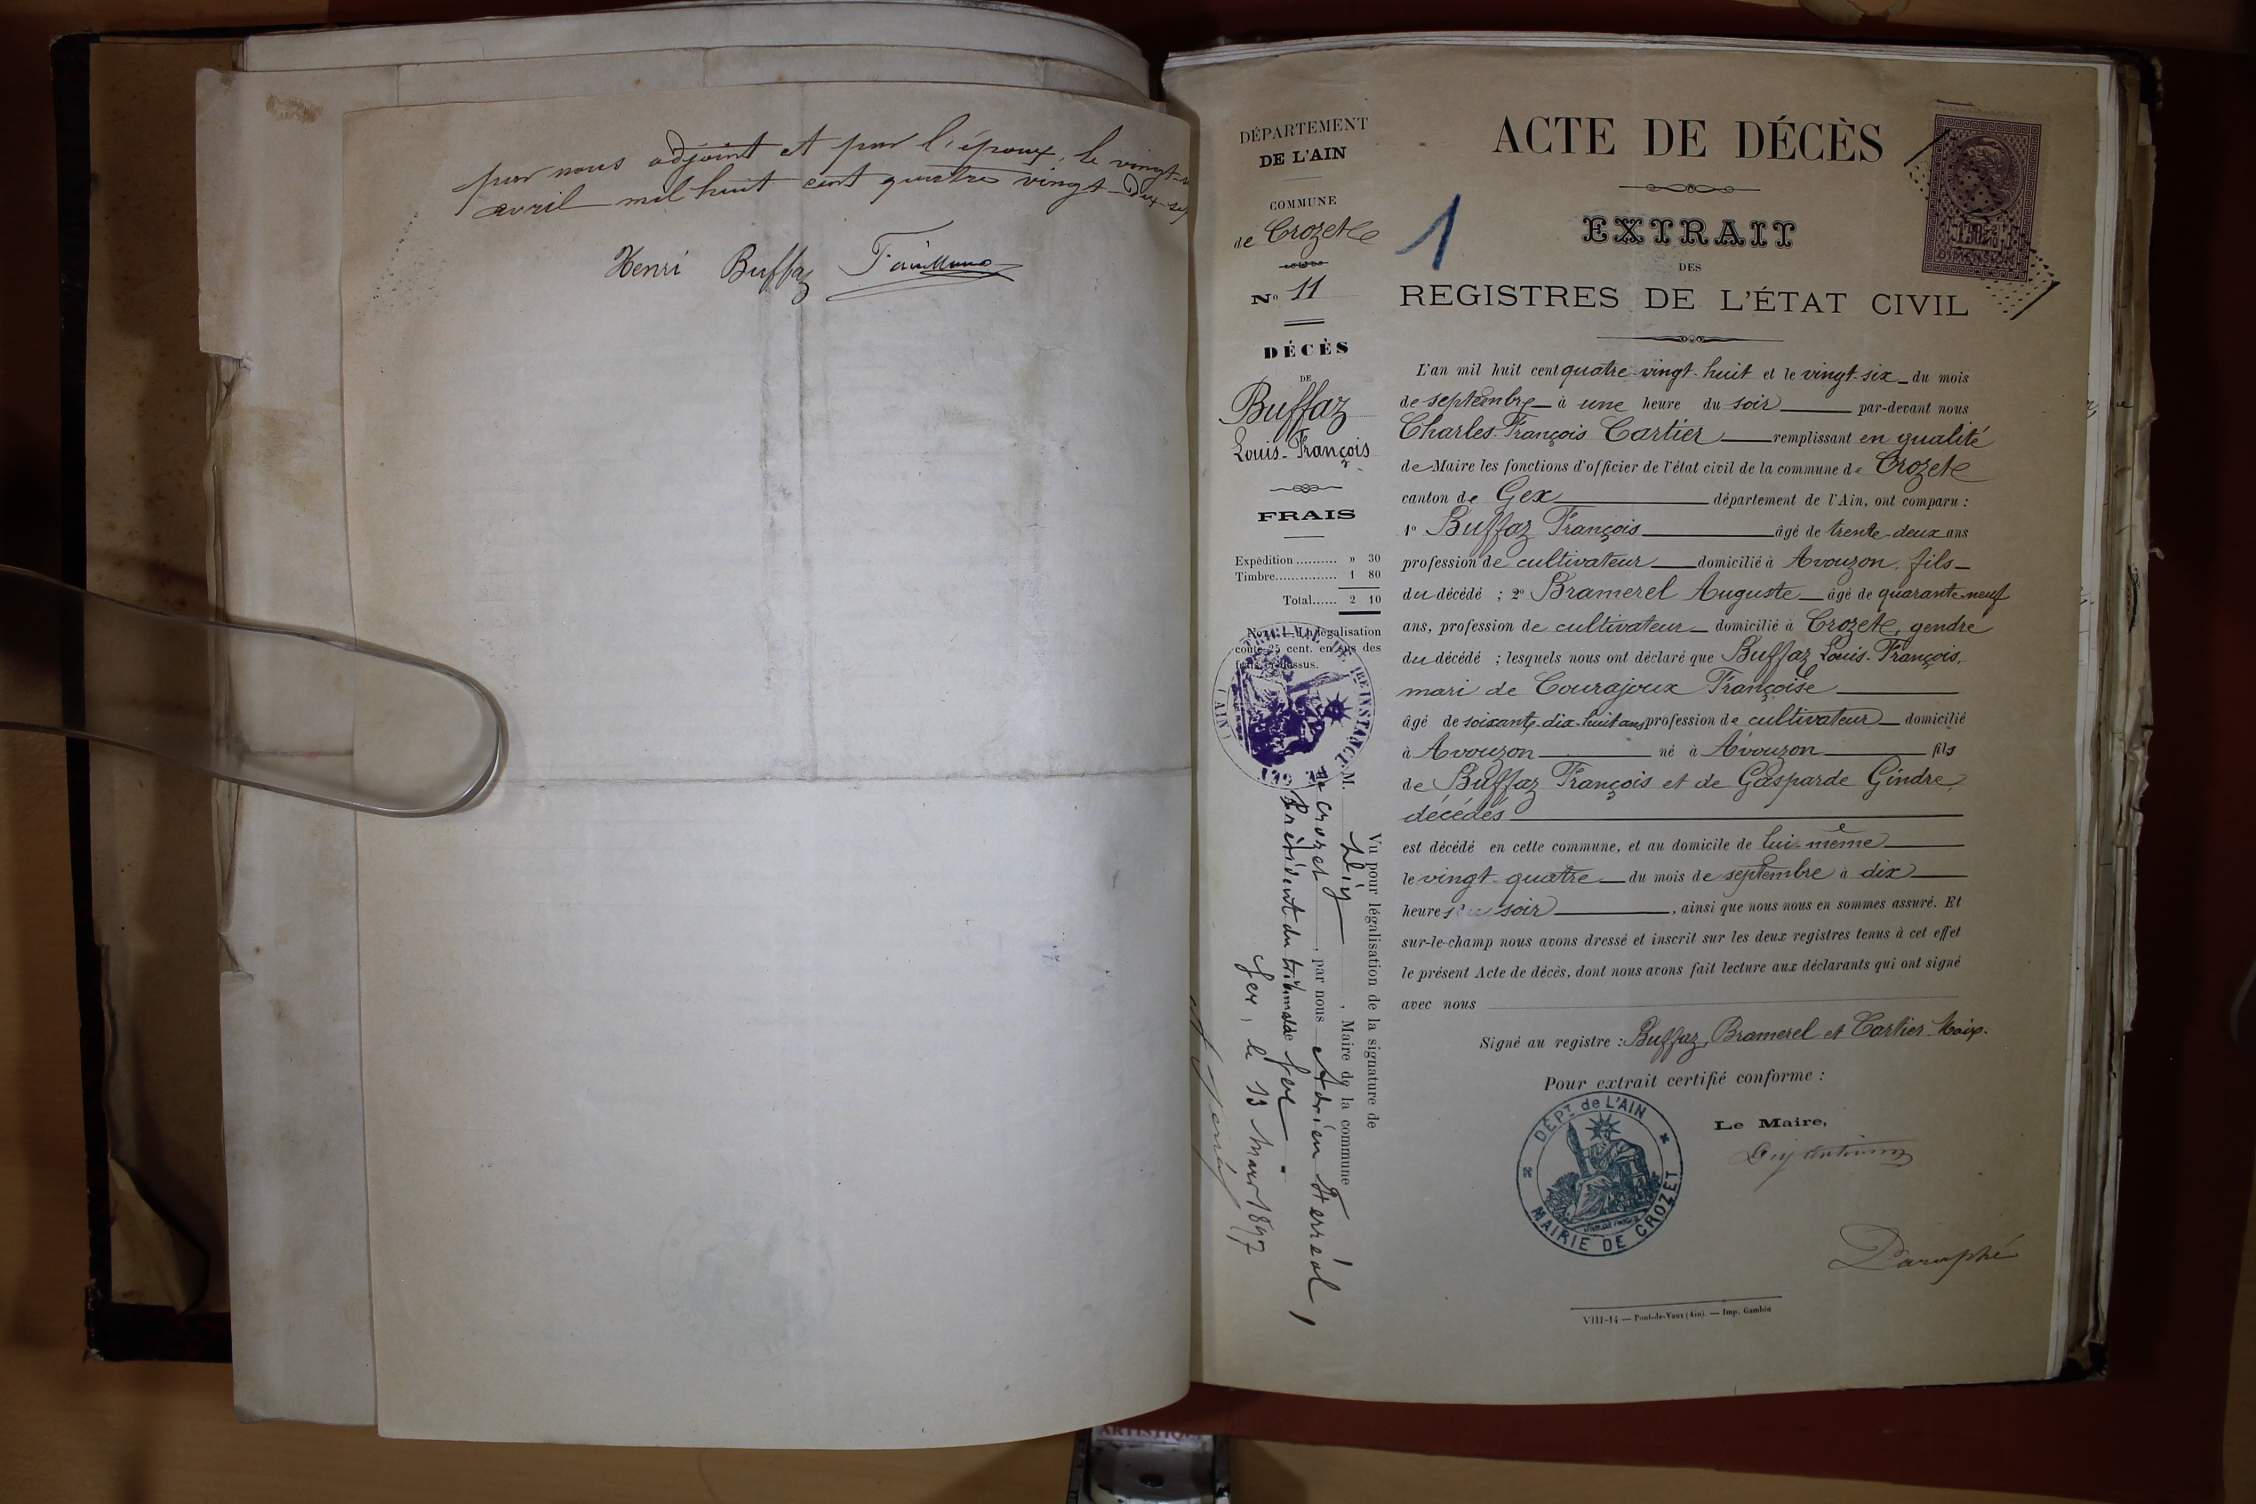 par nous adjoint et par l'époux, le vingt
avril mil huit cent quatre vingt-dix-sep
Henri Buffaz
DÉPARTEMENT
DE L'AIN
COMMUNE
de Crozet
N° 11
DÉCÈS
DE
Buffaz
Louis-François
FRAIS
Expédition .......... » 30
Timbre............... 1 80
Total...... 2 10
Nota. — La légalisation
coûte 25 cent. en sus des
frais ci-dessus.
1
ACTE DE DÉCÈS
EXTRAIT
DES
REGISTRES DE L'ÉTAT CIVIL
DIMENSION
L'an mil huit cent quatre-vingt-huit et le vingt-six du mois
de septembre à une heure du soir par-devant nous
Charles-François Cartier remplissant en qualité
de Maire les fonctions d'officier de l'état civil de la commune de Crozet
canton de Gex département de l'Ain, ont comparu :
1° Buffaz François âgé de trente-deux ans
profession de cultivateur domicilié à Avouzon, fils
du décédé ; 2° Bramerel Auguste âgé de quarante-neuf
ans, profession de cultivateur domicilié à Crozet, gendre
du décédé ; lesquels nous ont déclaré que Buffaz Louis-François,
mari de Courajoux Françoise
âgé de soixante-dix-huit ans profession de cultivateur domicilié
à Avouzon né à Avouzon fils
de Buffaz François et de Gasparde Gindre,
décédés
est décédé en cette commune, et au domicile de lui-même
le vingt-quatre du mois de septembre à dix
heures du soir, ainsi que nous nous en sommes assuré. Et
sur-le-champ nous avons dressé et inscrit sur les deux registres tenus à cet effet
le présent Acte de décès, dont nous avons fait lecture aux déclarants qui ont signé
avec nous
Signé au registre : Buffaz, Bramerel et Cartier Maire.
Pour extrait certifié conforme :
Le Maire,
DÉPT. de L'AIN
MAIRIE DE CROZET
Paraphé
VIII-14 — Pont-de-Vaux (Ain). — Imp. Gambin
Vu pour légalisation de la signature de
M. , Maire de la commune
de Crozet, par nous Adrien Ferréol,
Président du tribunal de Gex
Gex, le 13 Mars 1897
1RE INSTANCE
GEX
(AIN)
ARTISTIQUE